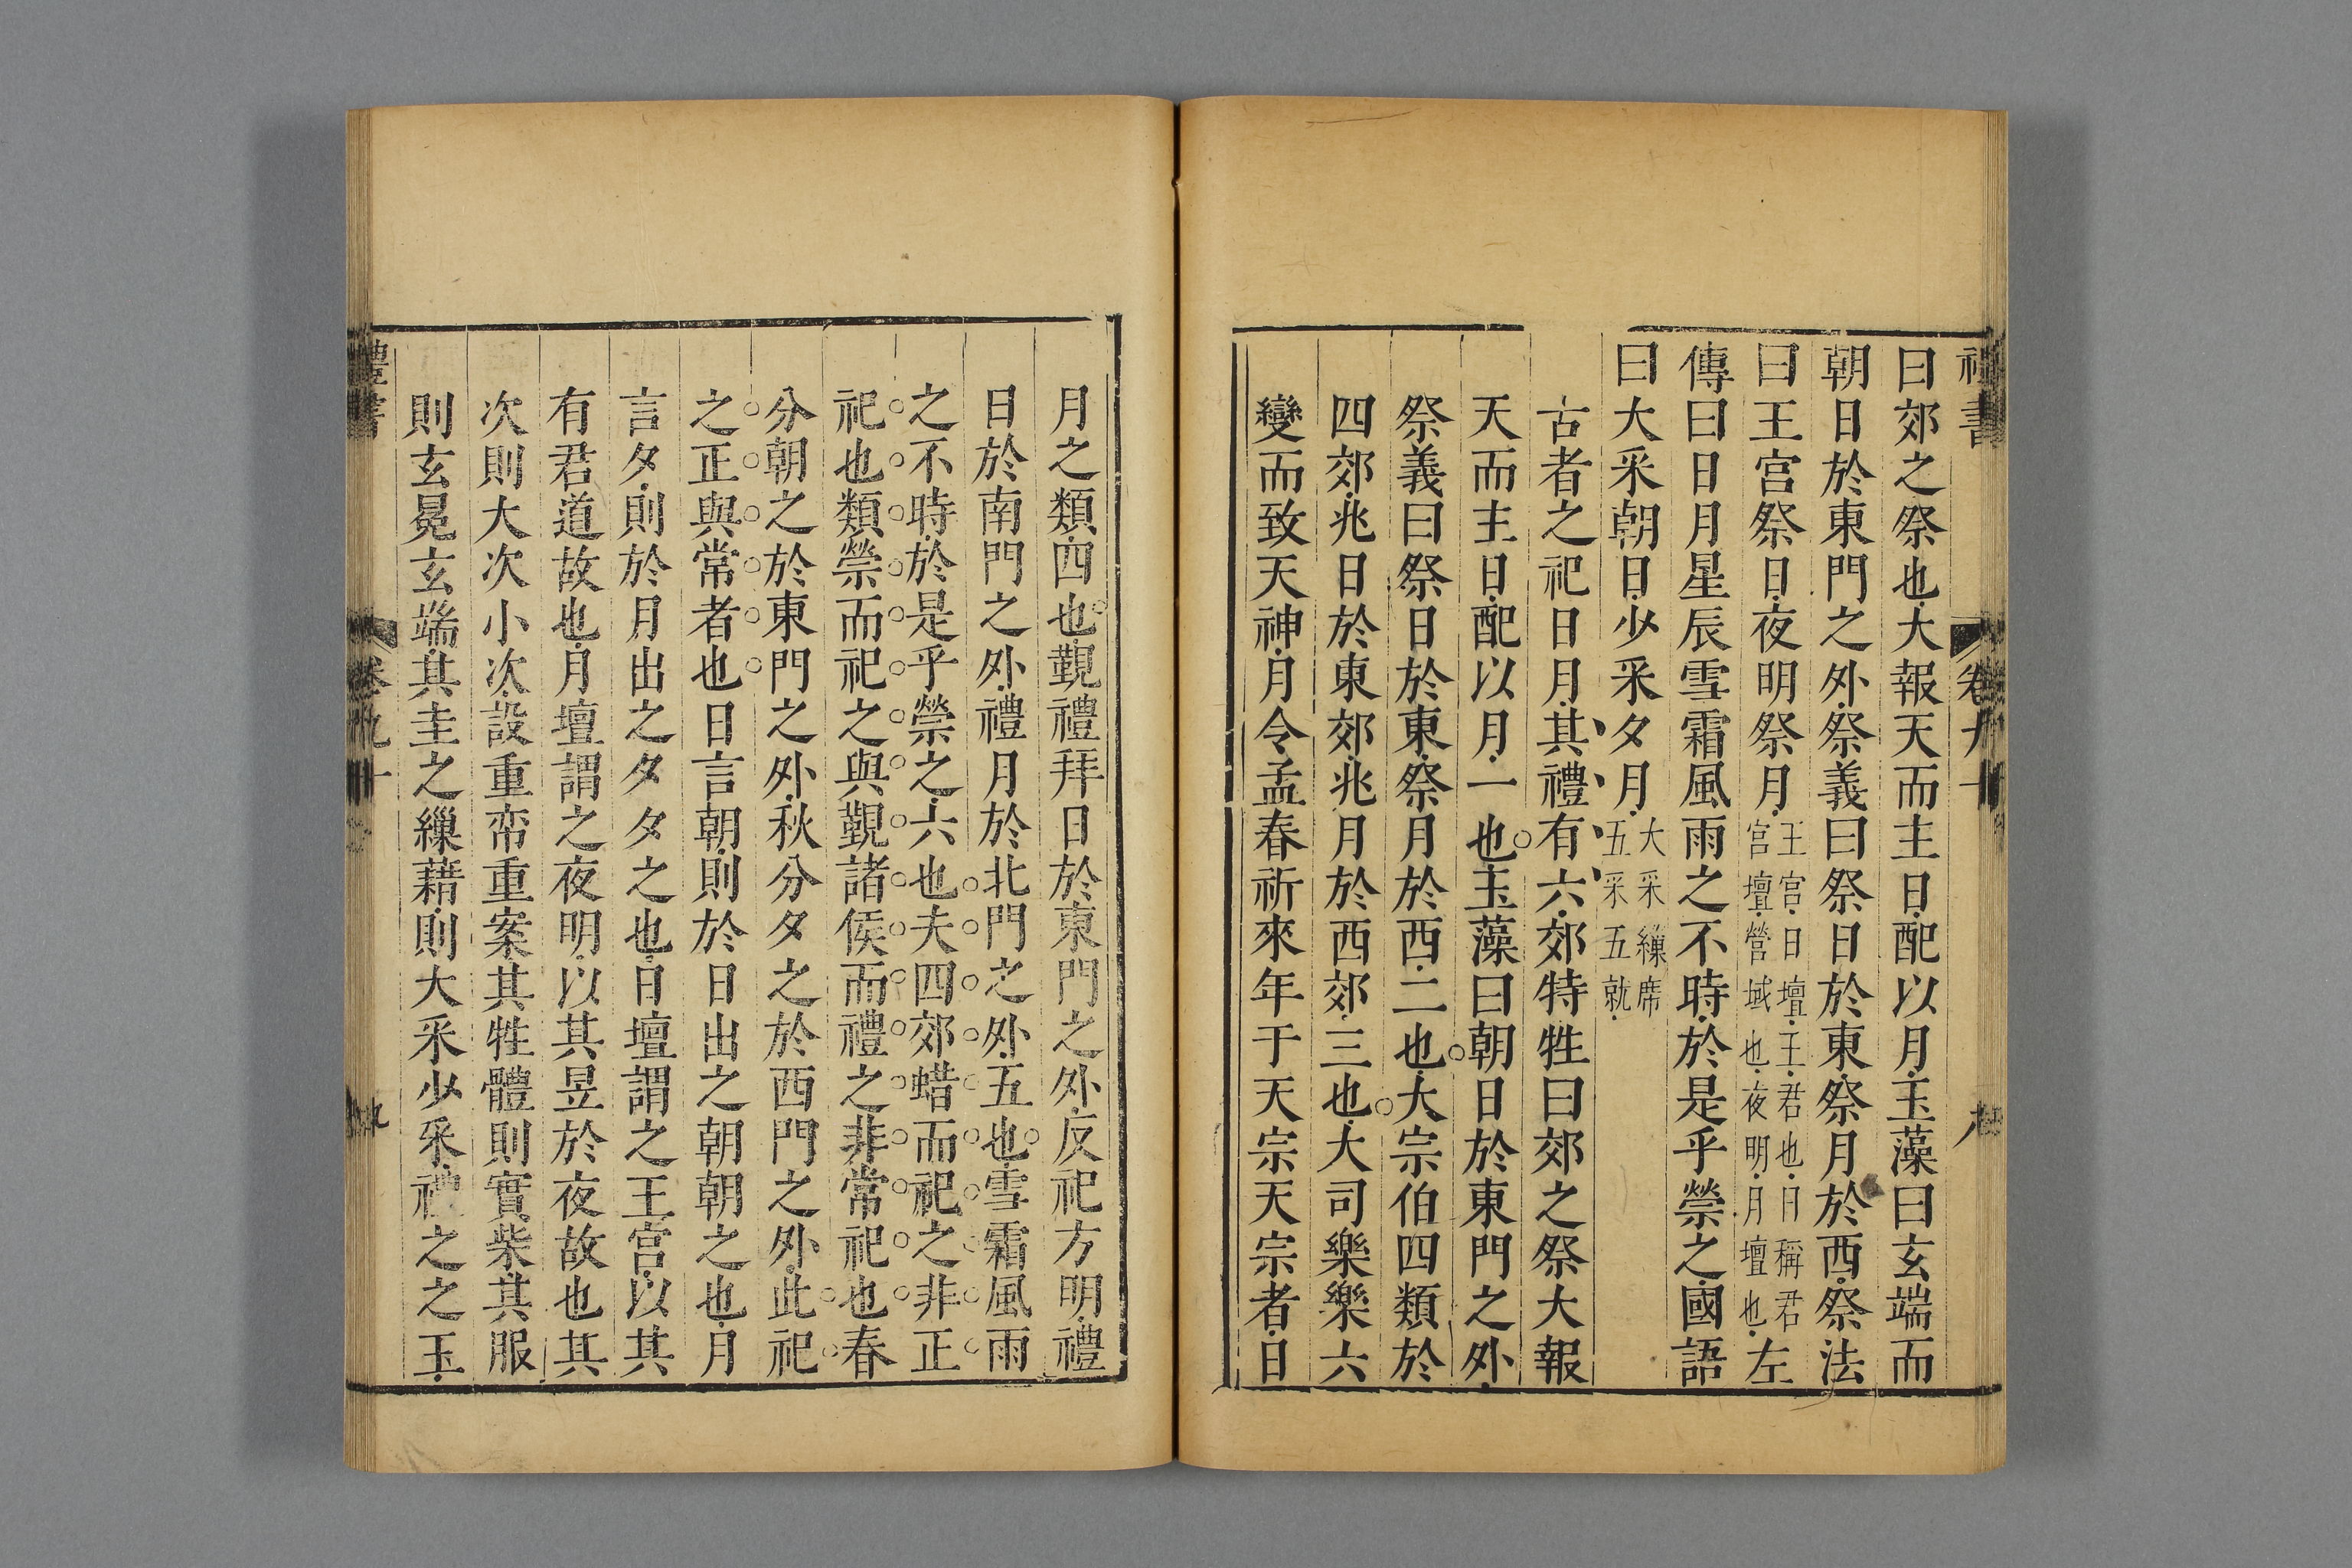 曰郊之祭也大報天而主日配以月玉藻曰玄端而
朝日於東門之外祭義曰祭日於東祭月於西祭法
曰王宮祭日夜明祭月王宮日壇王君也日稱君宮壇營域也夜明月壇也左
傳曰日月星辰雪霜風雨之不時於是乎禜之國語
曰大采朝日少采夕月大采繅席五采五就
古者之祀日月其禮有六郊特牲曰郊之祭大報
天而主日配以月一也玉藻曰朝日於東門之外
祭義曰祭日於東祭月於西二也大宗伯四類於
四郊兆日於東郊兆月於西郊三也大司樂樂六
變而致天神月令孟春祈來年于天宗天宗者日
月之類四也覲禮拜日於東門之外反祀方明禮
日於南門之外禮月於北門之外五也雪霜風雨
之不時於是乎禜之六也夫四郊蜡而祀之非正
祀也類禜而祀之與覲諸侯而禮之非常祀也春
分朝之於東門之外秋分夕之於西門之外此祀
之正與常者也日言朝則於日出之朝朝之也月
言夕則於月出之夕夕之也日壇謂之王宮以其
有君道故也月壇謂之夜明以其昱於夜故也其
次則大次小次設重帟重案其牲體則實柴其服
則玄冕玄端其圭之繅藉則大采少采禮之之玉
禮書
卷九十
九